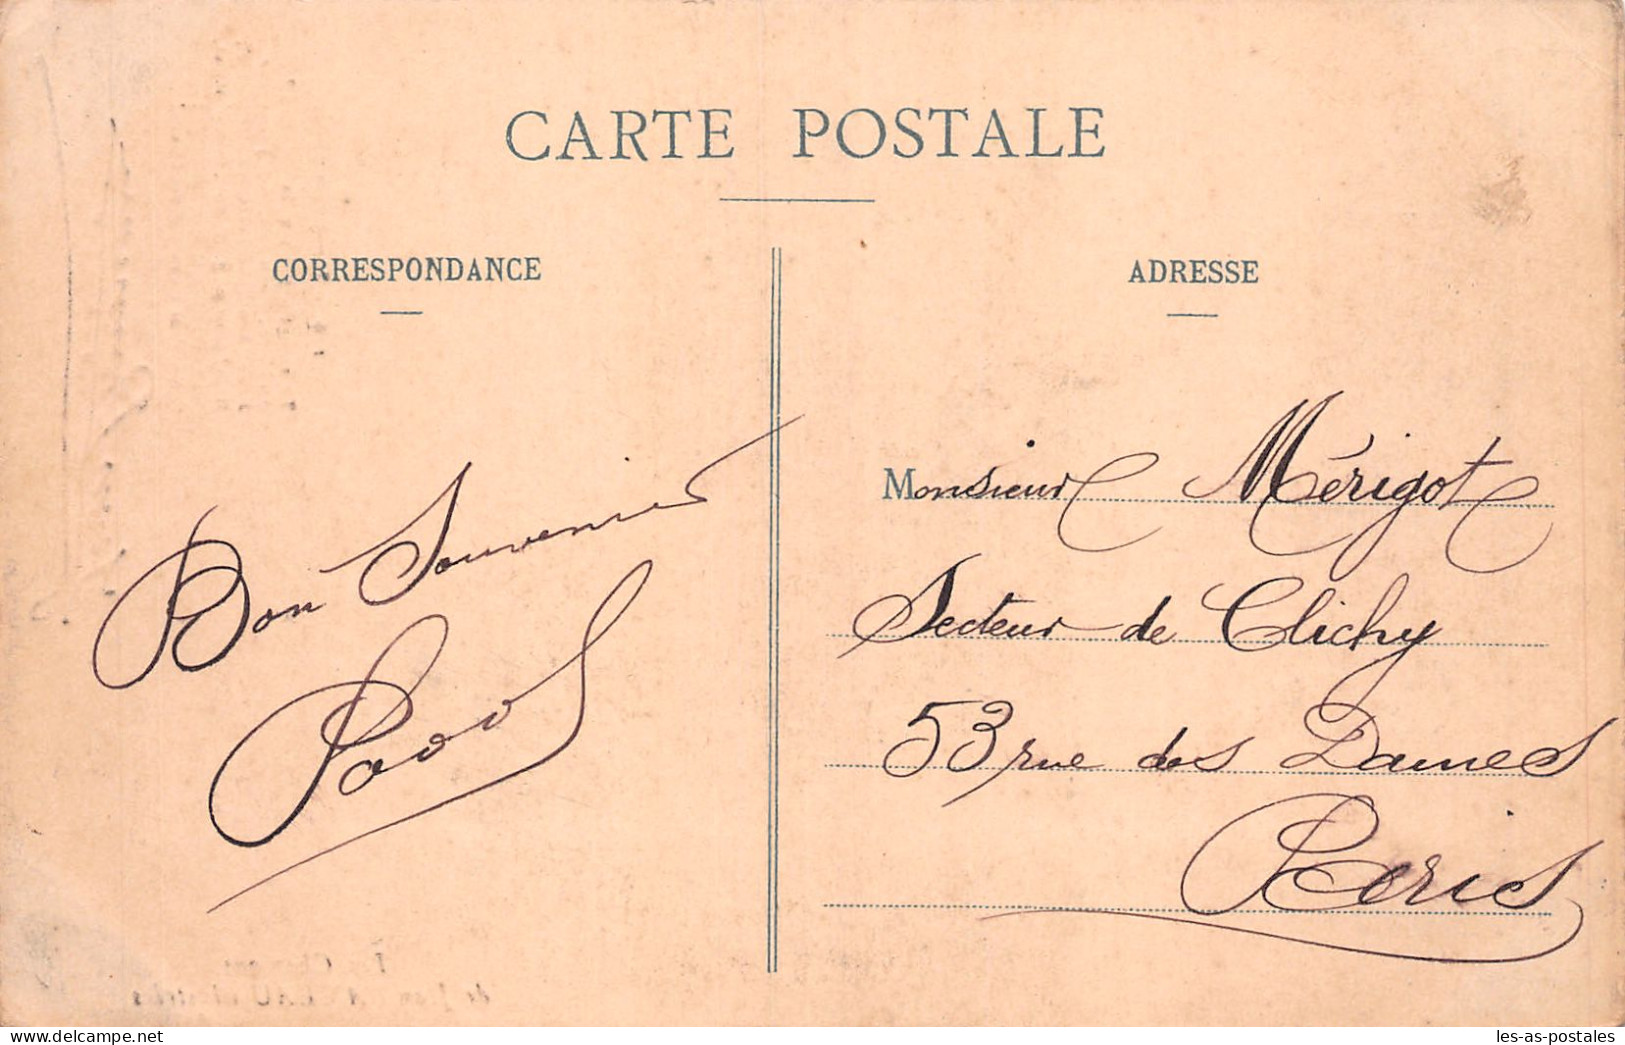 CARTE POSTALE
CORRESPONDANCE
ADRESSE
Bon Souvenir
Monsieur Mérigot
Secteur de Clichy
53 rue des Dames
Paris
delcampe.net
les-as-postales